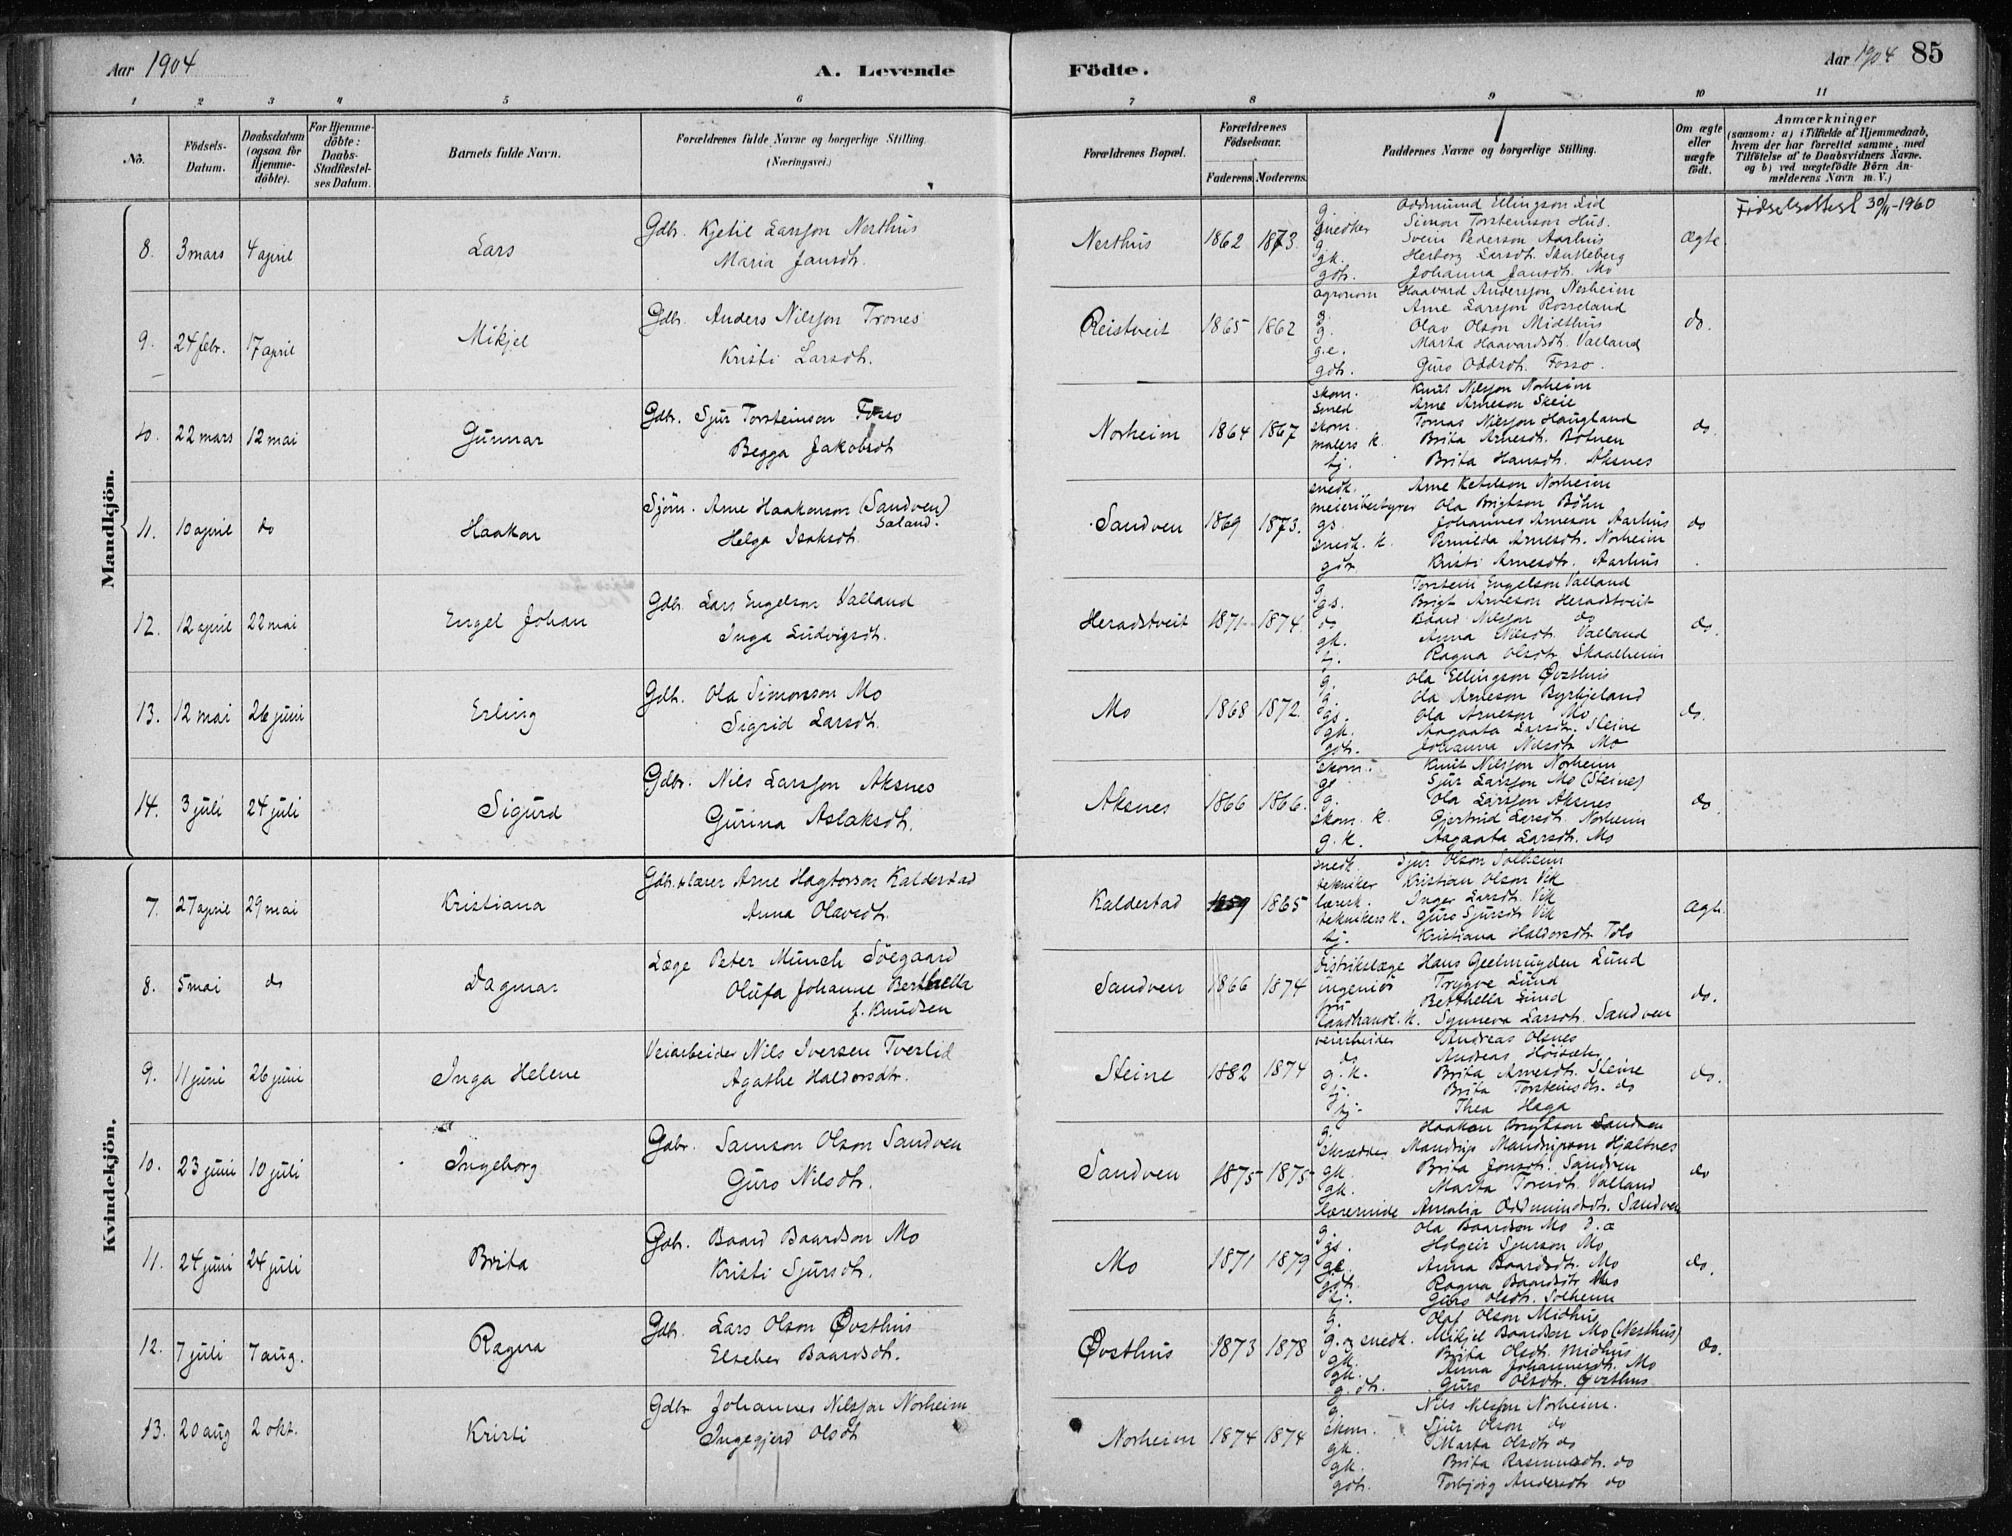 Aar 1904
A. Levende Födte.
Aar 1904 85
1 2 3 4 5 6 7 8 9 10 11
No.
Födsels-Datum.
Daabsdatum (ogsaa for Hjemme-döbte).
For Hjemme-döbte: Daabs-Stadfæstel-ses Datum.
Barnets fulde Navn.
Forældrenes fulde Navne og borgerlige Stilling.
(Næringsvei.)
Forældrenes Bopæl.
Forældrenes Födselsaar.
Faderens. Moderens.
Faddernes Navne og borgerlige Stilling.
Om ægte eller uægte födt.
Anmærkninger
(saasom: a) i Tilfælde af Hjemmedaab, hvem der har forrettet samme, med Tilföielse af to Daabsvidners Navne. og b) ved uægtefödte Börn An-melderens Navn m. V.)
Mandkjön.
8. 3 mars 4 april Lars Gdbr. Kjetil Larsson Nesthus
Maria Jansdt.
Nesthus 1862 1873. Ægte
g. Oddmund Ellingson Lid
snedker Simon Torsteinson Hus.
g. Svein Pederson Aarhus
gk. Herborg Larsdt. Skutleberg
gdt. Johanna Jansdt. Mo
Födselsattest 30/11-1960
9. 24 febr. 17 april Mikjel Gdbr. Anders Nilsson Trones
Kristi Larsdt.
Reistveit 1865 1862 do.
agronom Haavard Andersson Nesheim
g. Arne Larsson Rosseland
g. Olav Olson Midthus
g.e. Marta Haavardsdt. Valland
gdt. Guro Oddsdt. Fosso.
10. 22 mars 12 mai Gunnar Gdbr. Sjur Torsteinson Fosso
Begga Jakobsdt
Norheim 1864 1867 do
skom. Knut Nilsson Norheim
Smed Arne Arneson Skeie
skom. Tomas Nilsson Haugland
malers k. Brita Arnesdt. Böhnen
tj. Brita Hansdt. Aksnes
11. 10 april do Haakon Sjöm. Arne Haakonson (Sandven)
Saland.
Helga Isaksdt.
Sandven 1869 1873. do
snedk. Arne Ketilson Norheim
meieribestyrer Ola Brigtson Böhn
gs. Johannes Arneson Aarhus
snedk. k. Pernilda Arnesdt. Norheim
gdt. Kristi Arnesdt. Aarhus
12. 12 april 22 mai Engel Johan Gdbr. Lars Engelson Valland
Inga Ludvigsdt.
Heradstveit 1871 1874. do.
g. Torstein Engelson Valland
gs. Brigt Arneson Heradstveit
do Baard Nilsson do
gk. Anna Nilsdt. Valland
tj. Ragna Olsdt. Skaalheim
13. 12 mai 26 juni Erling Gdb. Ola Simonson Mo
Sigrid Larsdt.
Mo 1868 1872. do.
g. Ola Ellingson Övsthus
g. Ola Arneson Byrkjeland
gs. Ola Arneson Mo
gk. Aagaata Larsdt. Steine
gdt. Johanna Nilsdt. Mo
14. 3 juli 24 juli Sigurd Gdbr. Nils Larsson Aksnes
Gurina Aslaksdt.
Aksnes 1866 1866. do.
skom. Knut Nilsson Norheim
g. Sjur Larsson Mo (Steine)
g. Ola Larsson Aksnes
skom. k. Gjertrud Larsdt. Norheim
g. k. Aagaata Larsdt. Mo
Kvindekjön.
7. 27 april 29 mai Kristiana Gdb. & lærer Arne Hagtorson Kaldestad
Anna Olavsdt.
Kaldestad 1859 1865 Ægt.
snedk. Sjur Olson Solheim
tekniker Kristian Olson Vik
lærerk. Inger Larsdt. Vik
teknikers k. Guro Sjursdt Vik
tj. Kristiana Haldorsdt. Tolo
8. 5 mai do Dagmar Læge Peter Munch Söegaard
Olufa Johanne Berthella
f. Knudsen
Sandven 1866 1874 do.
Distriktslæge Hans Geelmuyden Lund
ingeniör Trygve Lund
fru Berthella Lund
landhandl. k. Synneva Larsdt. Sandven
9. 11 juni 26 juni Inga Helene Veiarbeider Nils Iversen Tverlid
Agathe Haldorsdtr.
Steine 1882 1874 do.
veiarbeider Andreas Olsnes
do Andreas
g. k. Brita Arnesdt. Steine
tj. Brita Torsteinsdt. do
tj. Thea Haga
10. 23 juni 10 juli Ingeborg Gdbr. Samson Olson Sandven
Guro Nilsdt.
Sandven 1875 1875 do
g. Haakon Brigtson Sandven
Skrædder Mandrup Mandrupson Hjeltnes
gk. Brita Jonsdt. Sandven
gk. Marta Torsdt. Valland
Lærerinde Amalia Oddmundsdt. Sandven
11. 24 juni 24 juli Brita Gdbr. Baard Baardson Mo
Kristi Sjursdt.
Mo 1871 1879 do.
g. Ola Baardson Mo d.æ
gs. Holgeir Sjurson Mo
ge Anna Baardsdt. Mo
gdt. Ragna Baardsdt Mo
tj. Guro Olsdt. Solheim
12. 7 juli 7 aug. Ragna Gdb. Lars Olson Övsthus
Elseber Baardsdt.
Övsthus 1873 1878 do.
g. Olaf Olson Midhus
g. og snedk. Mikjel Baardson Mo (Nesthus)
gk. Brita Olsdt. Midhus
gk. Anna Johannesdt. Mo
g. dt. Guro Olsdt. Övsthus
13. 20 aug 2 okt. Kristi Gdbr Johannes Nilsson Norheim
Ingegjerd Olsdt
Norheim 1874 1874
g. Nils Nilsson Norheim.
skom. Sjur Olson do
gk. Marta Olsdt. do
gk. Brita Rasmusdt. do
gdt. Torbjörg Andersdt do